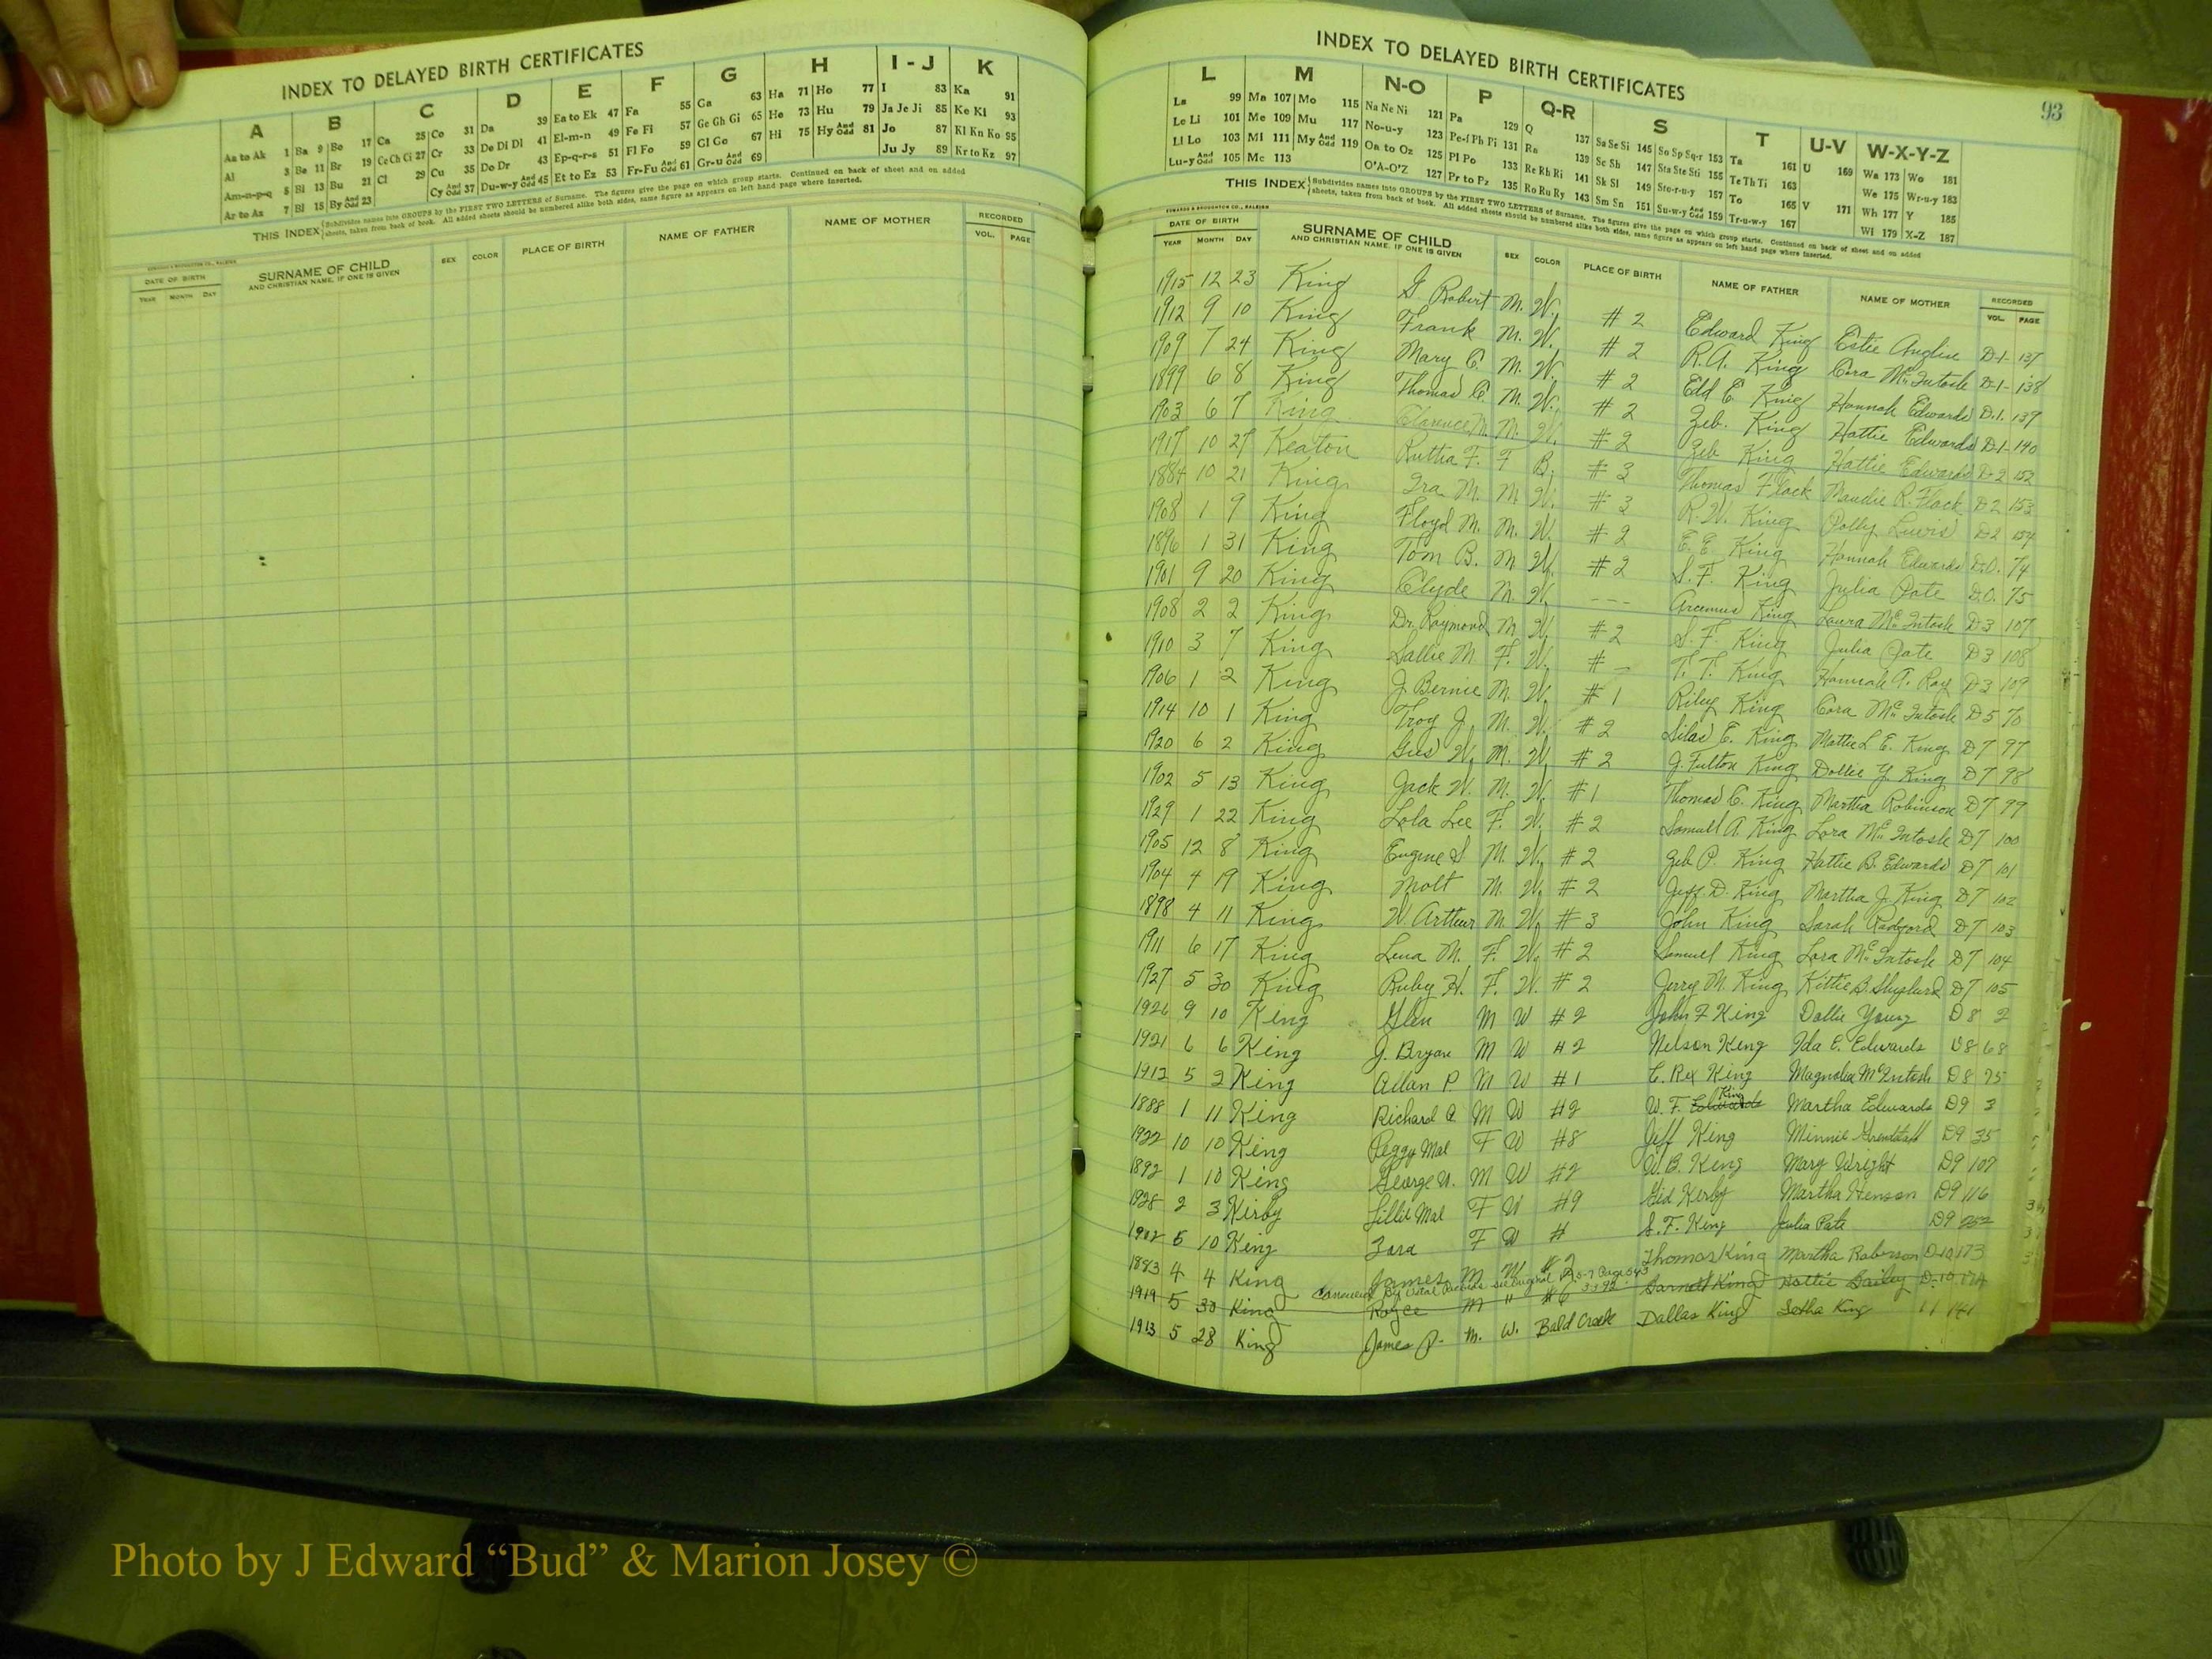 INDEX TO DELAYED BIRTH CERTIFICATES
A B C D E F G H I - J K
Aa to Ak 1 Ba 9 Bo 17 Ca 25 Co 31 Da 39 Ea to Ek 47 Fa 55 Ga 63 Ha 71 Ho 77 I 83 Ka 91
Al 3 Be 11 Br 19 Ce Ch Ci 27 Cr 33 De Di Dl 41 El-m-n 49 Fe Fi 57 Ge Gh Gi 65 He 73 Hu 79 Ja Je Ji 85 Ke Ki 93
Am-n-p-q 5 Bi 13 Bu 21 Cl 29 Cu 35 Do Dr 43 Ep-q-r-s 51 Fl Fo 59 Gl Go 67 Hi 75 Hy And Odd 81 Jo 87 Kl Kn Ko 95
Ar to Az 7 Bl 15 By And Odd 23 Cy And Odd 37 Du-w-y And Odd 45 Et to Ez 53 Fr-Fu And Odd 61 Gr-u And Odd 69 Ju Jy 89 Kr to Kz 97
THIS INDEX Subdivides names into GROUPS by the FIRST TWO LETTERS of Surname. The figures give the page on which group starts. Continued on back of sheet and on added
sheets, taken from back of book. All added sheets should be numbered alike both sides, same figure as appears on left hand page where inserted.
DATE OF BIRTH SURNAME OF CHILD AND CHRISTIAN NAME, IF ONE IS GIVEN SEX COLOR PLACE OF BIRTH NAME OF FATHER NAME OF MOTHER RECORDED
YEAR MONTH DAY VOL. PAGE
INDEX TO DELAYED BIRTH CERTIFICATES
93
L M N-O P Q-R S T U-V W-X-Y-Z
La 99 Ma 107 Mo 115 Na Ne Ni 121 Pa 129 Q 137 Sa Se Si 145 So Sp Sq-r 153 Ta 161 U 169 Wa 173 Wo 181
Le Li 101 Me 109 Mu 117 No-u-y 123 Pe-f Ph Pi 131 Ra 139 Sc Sh 147 Sta Ste Sti 155 Te Th Ti 163 We 175 Wr-u-y 183
Ll Lo 103 Mi 111 My And Odd 119 Oa to Oz 125 Pl Po 133 Re Rh Ri 141 Sk Sl 149 Sto-r-u-y 157 To 165 V 171 Wh 177 Y 185
Lu-y And Odd 105 Mc 113 O'A-O'Z 127 Pr to Pz 135 Ro Ru Ry 143 Sm Sn 151 Su-w-y And Odd 159 Tr-u-w-y 167 Wi 179 X-Z 187
THIS INDEX Subdivides names into GROUPS by the FIRST TWO LETTERS of Surname. The figures give the page on which group starts. Continued on back of sheet and on added
sheets, taken from back of book. All added sheets should be numbered alike both sides, same figure as appears on left hand page where inserted.
EDWARDS & BROUGHTON CO., RALEIGH
DATE OF BIRTH SURNAME OF CHILD AND CHRISTIAN NAME, IF ONE IS GIVEN SEX COLOR PLACE OF BIRTH NAME OF FATHER NAME OF MOTHER RECORDED
YEAR MONTH DAY VOL. PAGE
1915 12 23 King G. Robert M. W. # 2 Edward King Estie Anglin D-1- 137
1912 9 10 King Frank M. W. # 2 R.A. King Cora McIntosh D-1- 138
1909 7 24 King Mary C. M. W. # 2 Edd E. King Hannah Edwards D.1. 139
1899 6 8 King Thomas C. M. W. # 2 Zeb. King Hattie Edwards D-1- 140
1903 6 7 King Clarence M. M. W. # 2 Zeb King Hattie Edwards D-2 152
1917 10 27 Keaton Rutha F. F B. # 3 Thomas Flack Maudie R. Flack D2 153
1884 10 21 King Ira M. M W. # 3 R.W. King Polly Lewis D2 154
1908 1 9 King Floyd M. M. W. # 2 E.E. King Hannah Edwards D.O. 74
1896 1 31 King Tom B. M W. # 2 S.F. King Julia Pate D.O. 75
1901 9 20 King Clyde M. W. --- Arcemus King Laura McIntosh D3 107
1908 2 2 King Dr. Raymond M W. # 2 S.F. King Julia Pate D3 108
1910 3 7 King Sallie M. F. W. # - T.T. King Hannah A. Ray D3 109
1906 1 2 King J. Bernie M. W. # 1 Riley King Cora McIntosh D5 70
1914 10 1 King Troy J. M. W. # 2 Silas E. King Mattie L. E. King D7 97
1920 6 2 King Gus W. M. W. # 2 J. Fulton King Dollie Y. King D7 98
1902 5 13 King Jack W. M. W. # 1 Thomas C. King Martha Robinson D7 99
1929 1 22 King Lola Lee F. W. # 2 Samuel A. King Lora McIntosh D7 100
1905 12 8 King Eugene S M. W. # 2 Zeb P. King Hattie B. Edwards D7 101
1904 4 19 King Molt M. W. # 2 Jeff. D. King Martha J. King D7 102
1898 4 11 King W. Arthur M. W. # 3 John King Sarah Radford D7 103
1911 6 17 King Lena M. F. W. # 2 Samuel King Lora McIntosh D7 104
1927 5 30 King Ruby H. F. W. # 2 Jerry M. King Kittie B. Shepherd D7 105
1926 9 10 King Glen M W # 2 John F King Dollie Young D8 2
1921 6 6 King J. Bryan M W # 2 Nelson King Ida E. Edwards D8 68
1912 5 2 King Allan P M W #1 C. Rex King Magnolia McIntosh D8 75
1888 1 11 King Richard A M W #2 W.F. Edwards King Martha Edwards D9 3
1922 10 10 King Peggy Mae F W #8 Jeff King Minnie D9 35
1892 1 10 King George W. M W #2 W.B. King Mary Wright D9 107
1928 2 3 Kirby Lillie Mae F W #9 Gid Kirby Martha Henson D9 116
1902 5 10 King Zora F W # S.F. King Julia Pate D9 252
1883 4 4 King James M W # 2 Thomas King Martha Roberson D-10 173
Canceled By Vital Records see original Page 543 3-3-92
1919 5 30 King Royce M " # 6 Garnett King Hattie Bailey D-10 174
1913 5 28 King James P. M. W. Bald Creek Dallas King Letha King 11 141
Photo by J Edward “Bud” & Marion Josey ©